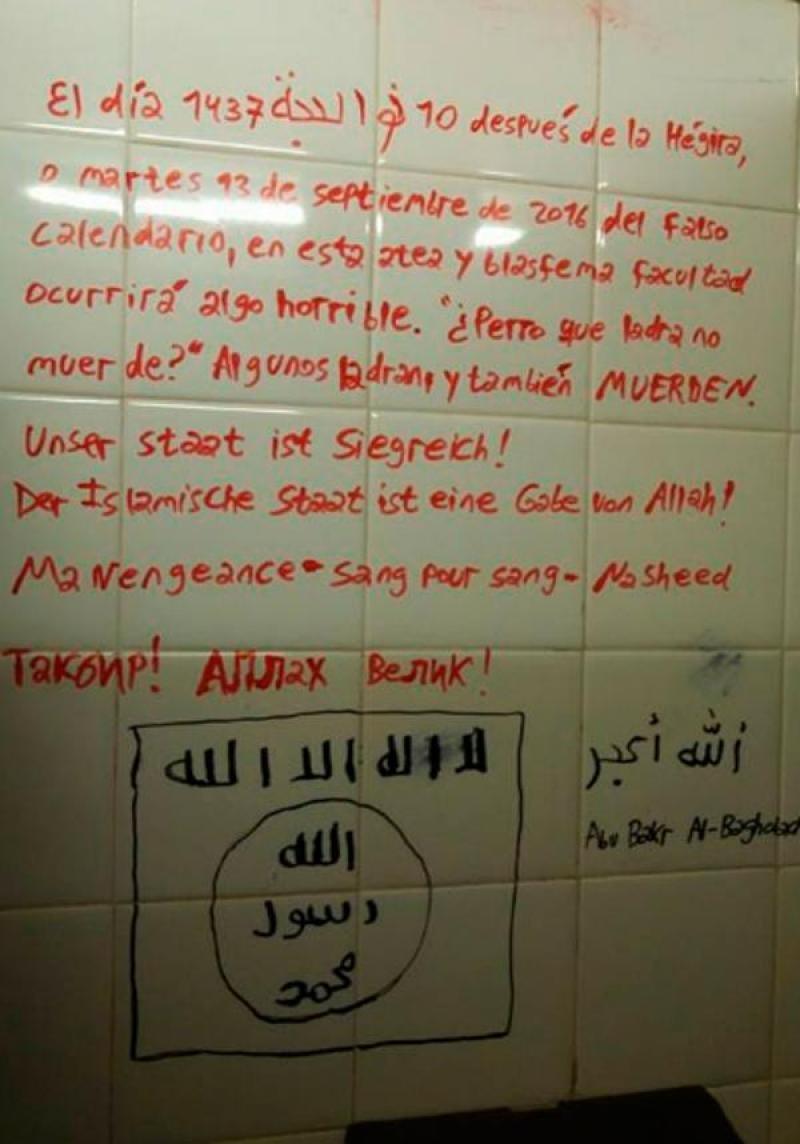 El día 1437 ذو الحجة 10 después de la Hégira,
o martes 13 de septiembre de 2016 del falso
calendario, en esta atea y blasfema facultad
ocurrirá algo horrible. "¿Perro que ladra no
muerde?" Algunos ladran, y también MUERDEN.
Unser staat ist Siegreich!
Der Islamische Staat ist eine Gabe von Allah!
Ma Vengeance - sang pour sang - Nasheed
Такбир! Аллах Велик!
لا اله الا الله
الله
رسول
محمد
ألله أكبر
Abu Bakr Al-Baghdad